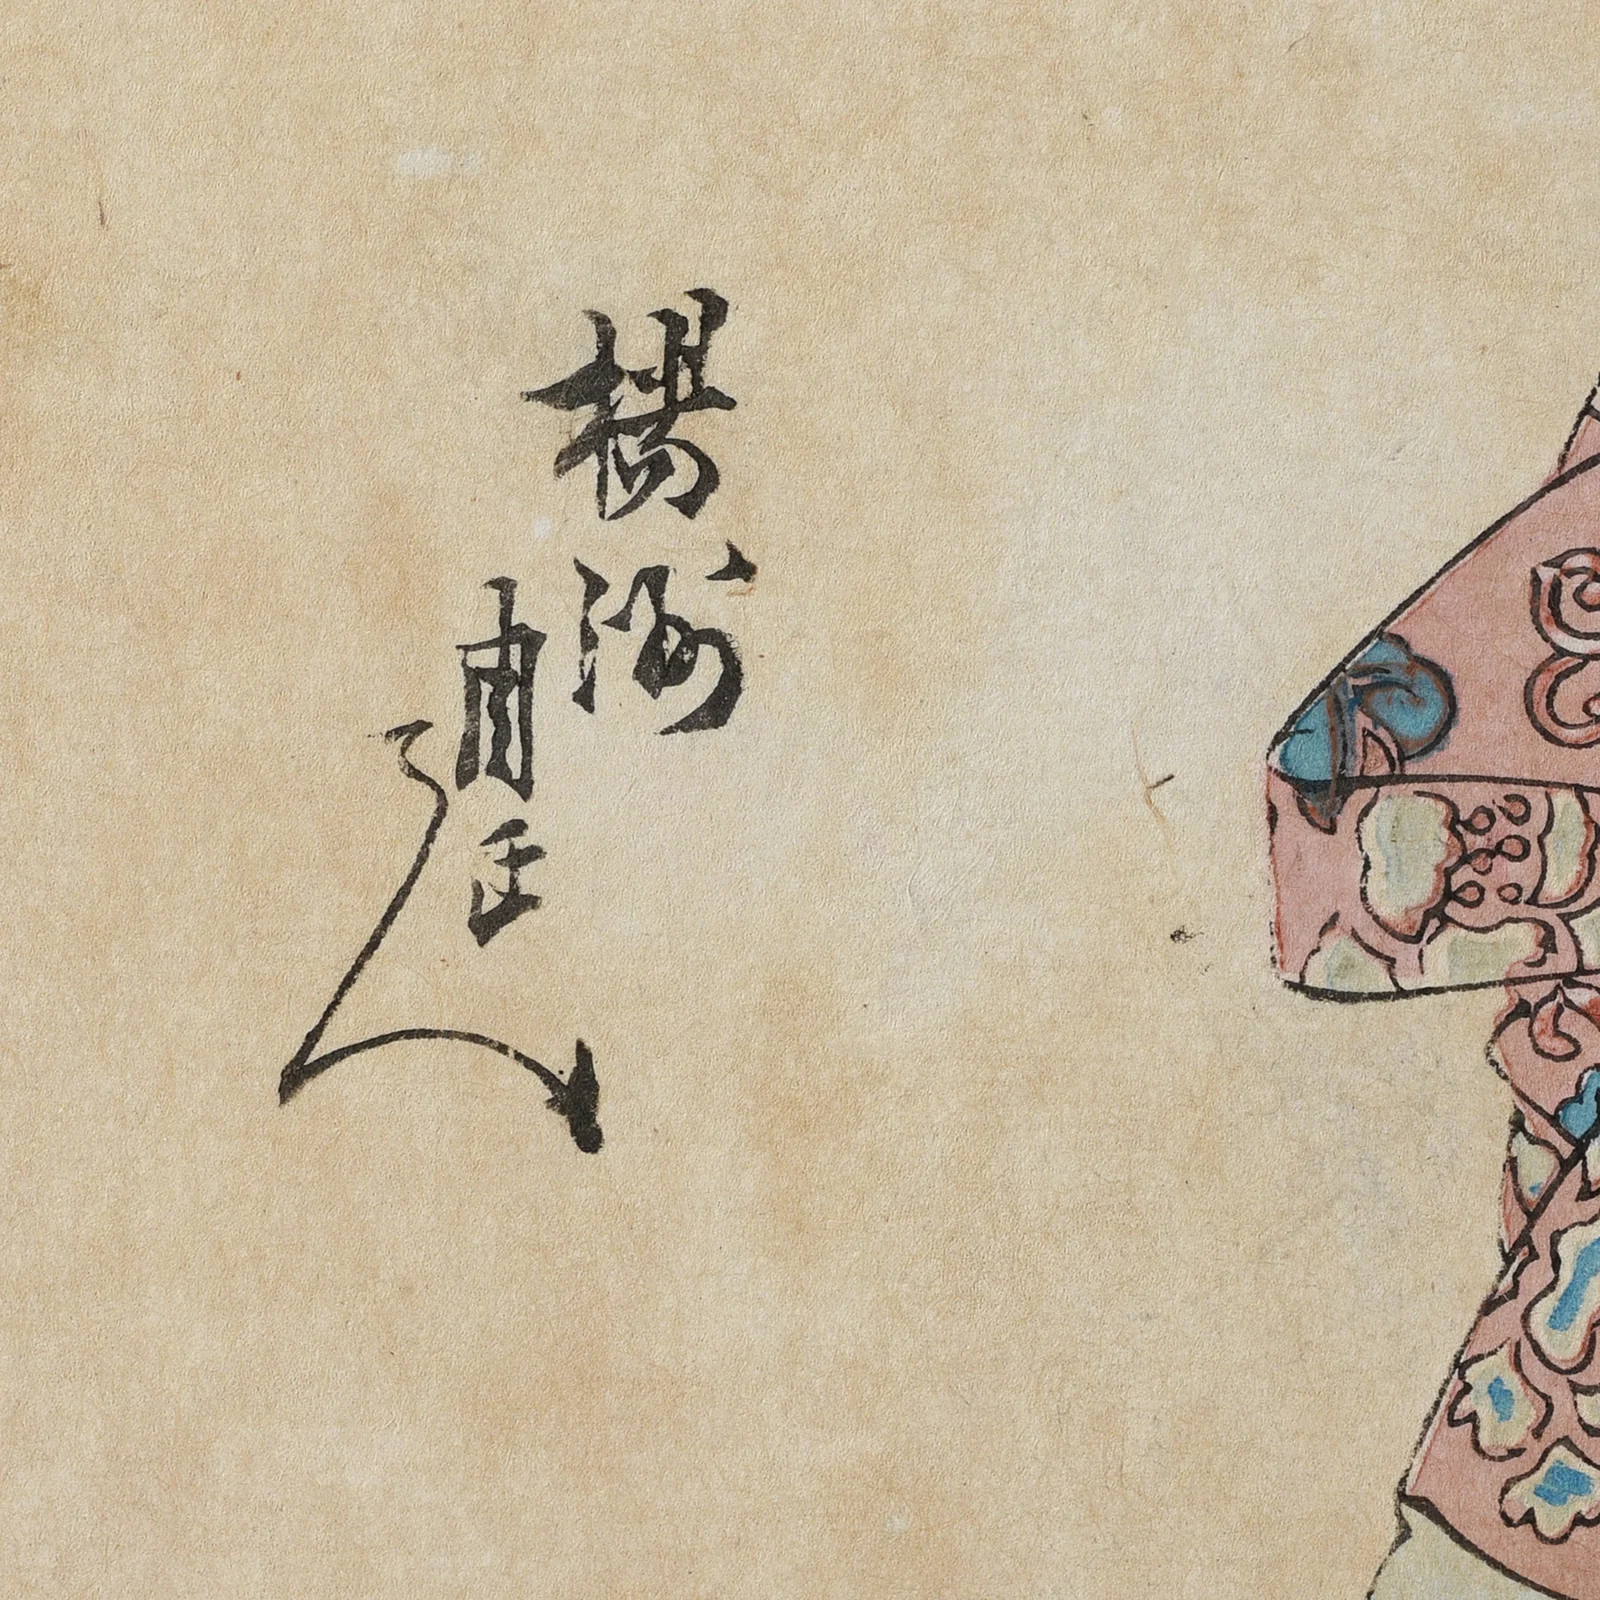 楊洲
周延